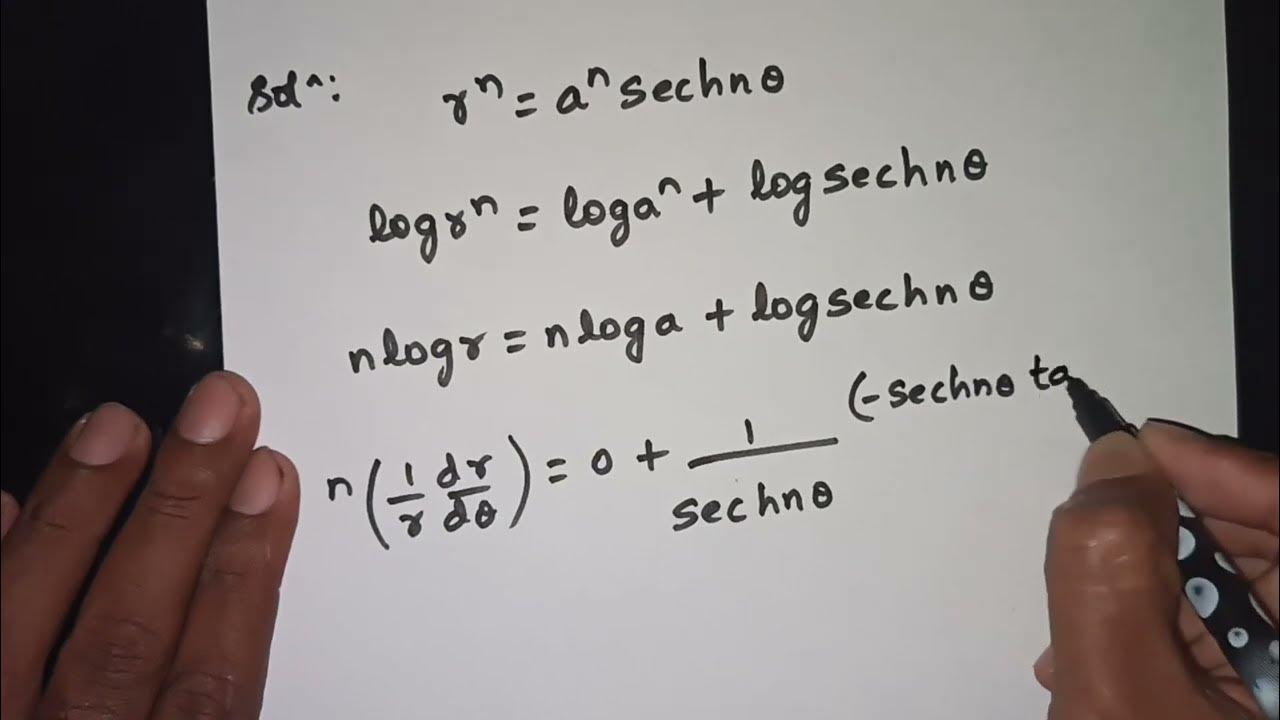 Solⁿ: rⁿ = aⁿ sechnθ
log rⁿ = log aⁿ + log sechnθ
n log r = n log a + log sechnθ
n(1/r dr/dθ) = 0 + 1/sechnθ (-sechnθ ta